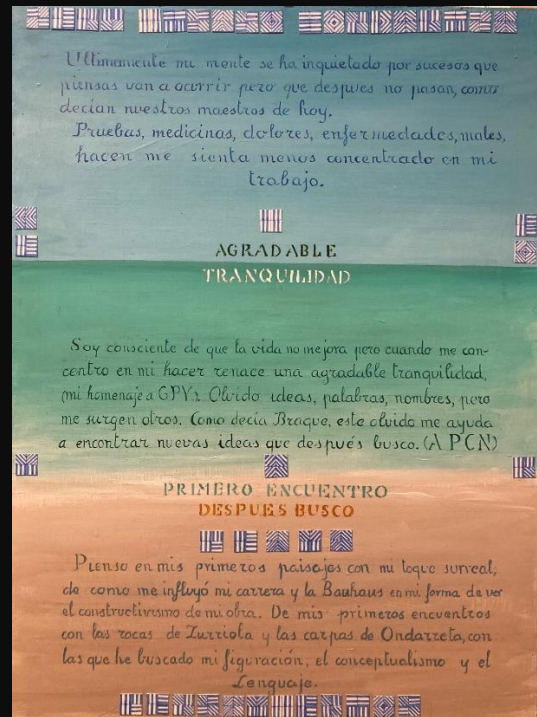 Ultimamente mi mente se ha inquietado por sucesos que
piensas van a ocurrir pero que despues no pasan, como
decían nuestros maestros de hoy.
Pruebas, medicinas, dolores, enfermedades, males,
hacen me sienta menos concentrado en mi
trabajo.
AGRADABLE
TRANQUILIDAD
Soy consciente de que la vida no mejora pero cuando me con-
centro en mi hacer renace una agradable tranquilidad,
(mi homenaje a GPV). Olvido ideas, palabras, nombres, pero
me surgen otros. Como decía Braque, este olvido me ayuda
a encontrar nuevas ideas que después busco. (A PCN)
PRIMERO ENCUENTRO
DESPUES BUSCO
Pienso en mis primeros paisajes con mi toque surreal,
de como me influyó mi carrera y la Bauhaus en mi forma de ver
el constructivismo de mi obra. De mis primeros encuentros
con las rocas de Zurriola y las carpas de Ondarreta, con
las que he buscado mi figuración, el conceptualismo y el
Lenguaje.